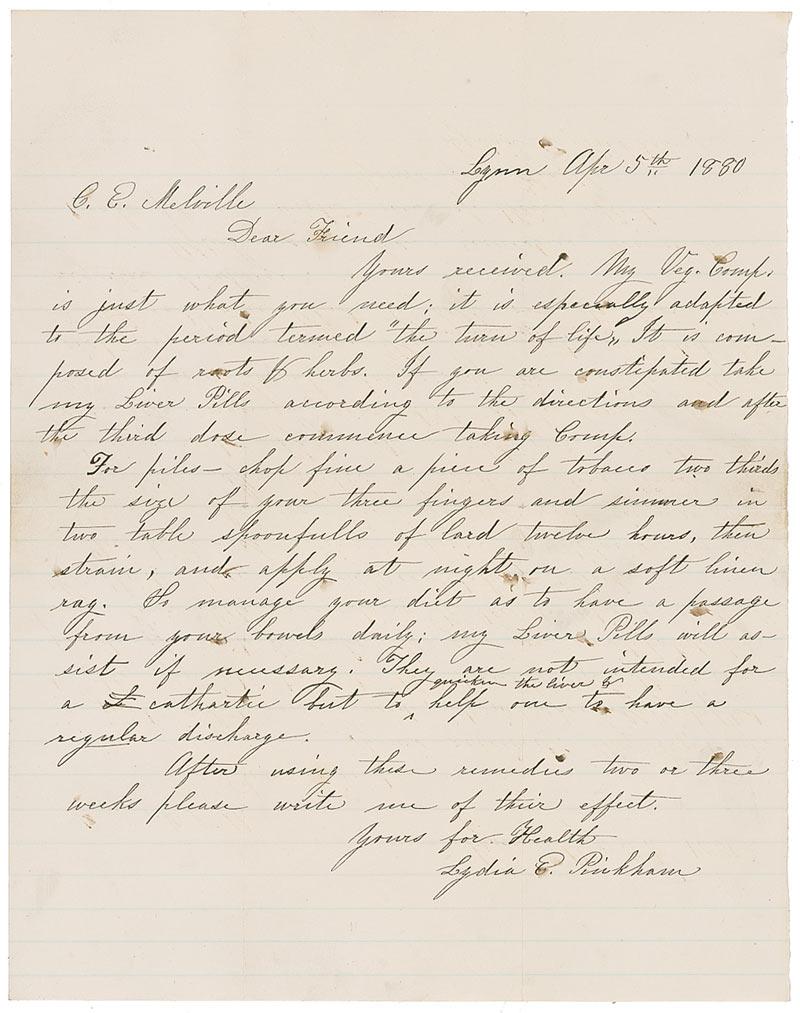 Lynn Apr 5th 1880
C. E. Melville
Dear Friend
Yours received. My Veg. Comp.
is just what you need; it is especially adapted
to the period termed "the turn of life„ It is com-
posed of roots & herbs. If you are constipated take
my Liver Pills according to the directions and after
the third dose commence taking Comp.
For piles - chop fine a piece of tobacco two thirds
the size of your three fingers and simmer in
two table spoonfulls of lard twelve hours, then
strain, and apply at night on a soft linen
rag. So manage your diet as to have a passage
from your bowels daily; my Liver Pills will as-
sist if necessary. They are not intended for
quicken the liver &
a cathartic but to ^ help one to have a
regular discharge.
After using these remedies two or three
weeks please write me of their effect.
Yours for Health
Lydia E. Pinkham